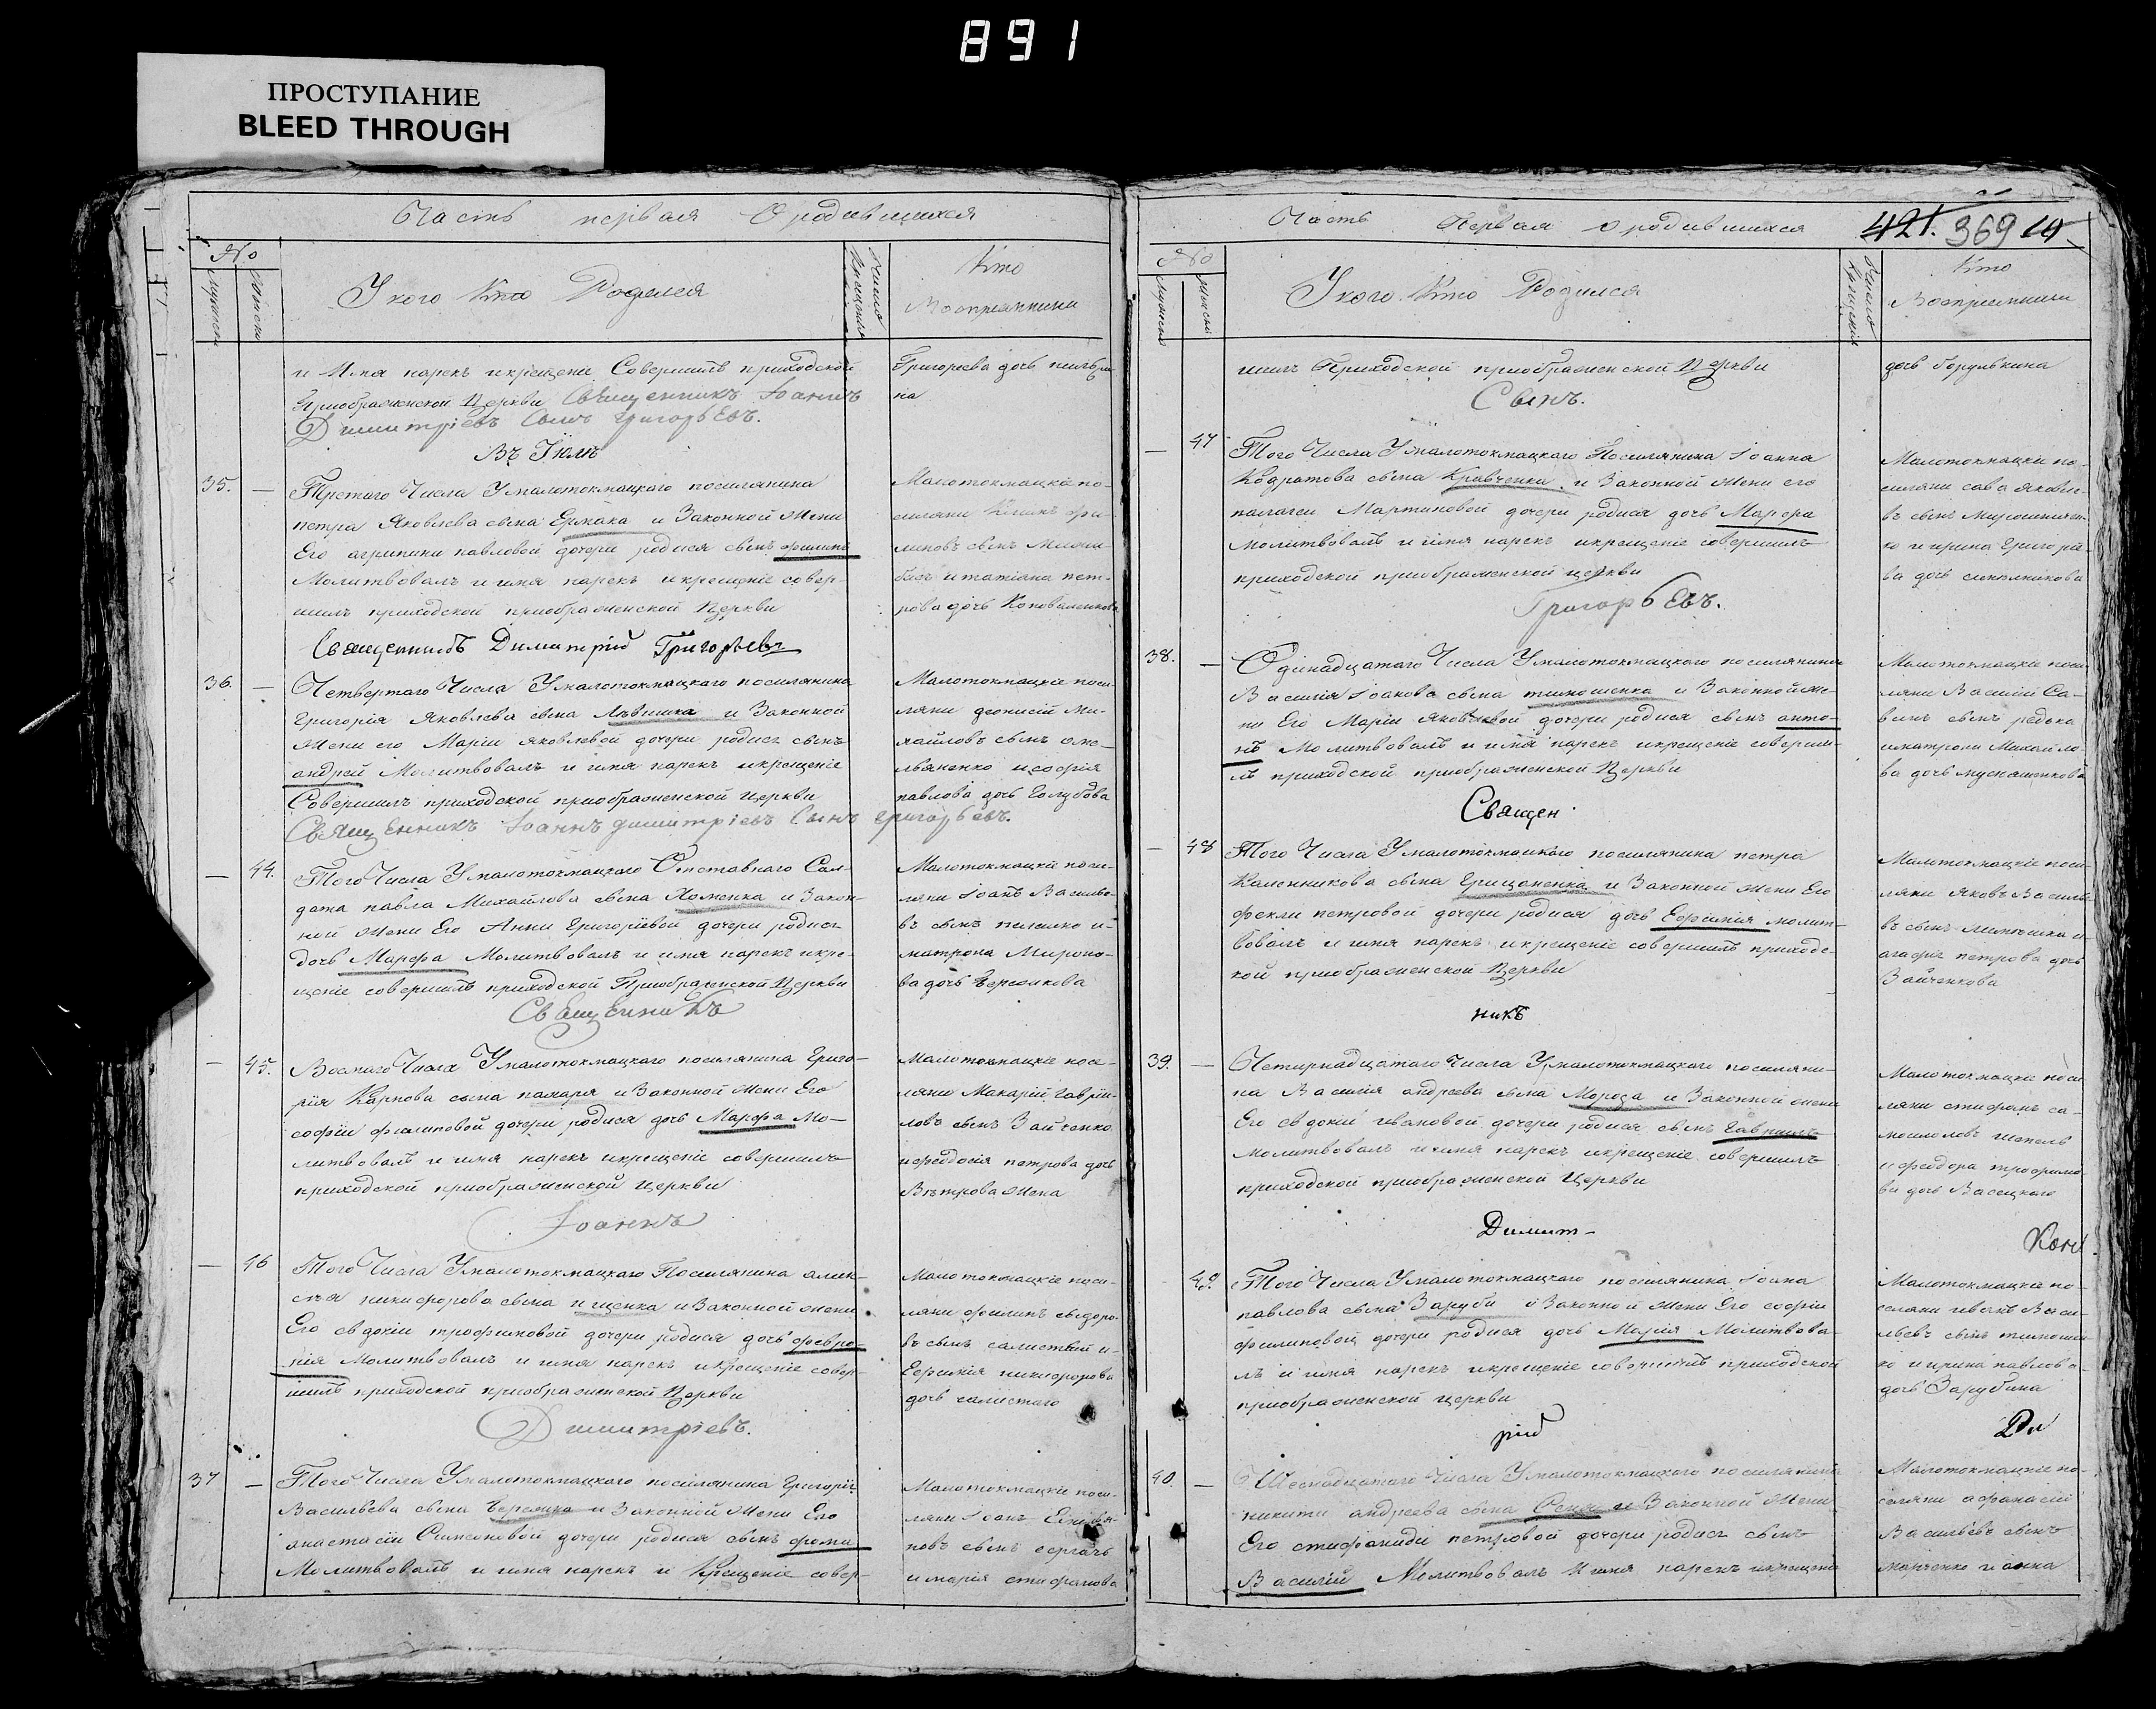 891
ПРОСТУПАНИЕ
BLEED THROUGH
Часть первая О родившихся
№
У кого кто Родился
Число
Кто
Воспріемники
и Имя нарекъ и крещеніе Совершилъ приходской
Преображенской Церкви Священникъ Іоаннъ
Димитріевъ Сынъ Григорьевъ.
Григорьева дочь
на
Въ Іюлѣ
35. —
Третяго Числа У малотокмацкаго поселянина
петра Яковлева сына Ермака и Законной Жены
Его агрипини павловой дочери родися сынъ филипъ
Молитвовалъ и имя нарекъ и крещеніе совер-
шилъ приходской преображенской Церкви
Малотокмацкіе по-
селяни
липовъ сынъ
и татіана пет-
рова дочь Коноваленкова
Священникъ Димитрій Григорьевъ
36. —
Четвертаго Числа У малотокмацкаго поселянина
Григорія Яковлева сына и Законной
Жени его Маріи яковлевой дочери родися сынъ
андрей Молитвовалъ и имя нарекъ и крещеніе
Совершилъ приходской преображенской церкви
Малотокмацкіе посе-
ляни деонисій Ми-
хайловъ сынъ оме-
льяненко и софія
павлова дочь Голубова
Священникъ Іоаннъ димитріевъ Сынъ григорьевъ.
— 44.
Того Числа У малотокмацкаго Отставнаго Сал-
дата павла Михайлова сына Хоменка и Закон-
ной Жени Его Анни Григоріевой дочери родися
дочь Марфа Молитвовалъ и имя нарекъ и кре-
щеніе совершилъ приходской Преображенской Церкви
Малотокмацкіе посе-
ляни Іоанъ Василье-
въ сынъ и
матрона Мироно-
ва дочь
Священникъ
— 45.
Восмаго Числа У малотокмацкаго поселянина Григо-
рія Карпова сына пахаря и Законной Жени Его
софіи филиповой дочери родися дочь Марфа Мо-
литвовалъ и имя нарекъ и крещеніе совершилъ
приходской преображенской церкви
Малотокмацкіе посе-
ляни Макарій гаврии-
ловъ сынъ Зайченко
и феодосія петрова дочь
Вѣтрова Жена
Іоаннъ
— 46
Того Числа У малотокмацкаго Поселянина алек-
сѣя никифорова сына и Законной жени
Его евдокіи трофимовой дочери родися дочь февро-
нія Молитвовалъ и имя нарекъ и крещеніе совер-
шилъ приходской преображенской Церкви
Малотокмацкіе посе-
ляни филипъ сыдоро-
въ сынъ и
Евфимія никифорова
дочь
Димитріевъ.
37 —
Того Числа У малотокмацкаго поселянина Григорія
Васильева сына и Законной Жени Его
анастасіи Симеоновой дочери родися сынъ фома
Молитвовалъ и имя нарекъ и Крещеніе совер-
Малотокмацкіе посе-
ляни Іоанъ
новъ сынъ сергачъ
и марія стифанова
Часть Первая о родившихся
421. 369
№
У кого Кто Родился
Число
крещенія
Кто
Воспріемники
шилъ Приходской преображенской Церкви
Сынъ.
дочь
— 47
Того Числа У малотокмацкаго Поселянина Іоанна
Кодратова сына Кравченка и Законной Жени его
палагеи Мартиновой дочери родися дочь Марфа
молитвовалъ и имя нарекъ и крещеніе совершилъ
приходской преображенской церкви
Малотокмацкіе по-
селяни сава яковле-
въ сынъ Мирошничен-
ко и ирина Григорие-
ва дочь
Григорьевъ.
38. —
Одинадцатаго Числа У малотокмацкаго поселянина
Василія Іоанова сына тимошенка и Законной Же-
ни Его Маріи яковлевой дочери родися сынъ анто-
нъ Молитвовалъ и имя нарекъ и крещеніе соверши-
лъ приходской преображенской Церкви
Малотокмацкіе посе-
ляни Василій Са-
винъ сынъ редька
и матрона Михайло-
ва дочь
Священ
— 48
Того Числа У малотокмацкаго поселянина петра
сына Грицаненка и Законной Жени Его
феклы петровой дочери родися дочь Евфимія молит-
вовалъ и имя нарекъ и крещеніе совершилъ приходс-
кой преображенской Церкви
Малотокмацкіе посе-
ляни Яковъ Василье-
въ сынъ и
агафія петрова дочь
Зайченкова
никъ
39. —
Четирнадцатаго Числа У малотокмацкаго поселяни-
на Василія андреева сына Мороза и Законной жени
Его евдокіи ивановой дочери родися сынъ Гавриилъ
молитвовалъ и имя нарекъ и крещеніе совершилъ
приходской преображенской Церкви
Малотокмацкіе посе
ляни стифанъ са-
мойловъ шепель
и феодора трофимо-
ва дочь
Димит-
— 49.
Того Числа У малотокмацкаго поселянина Іоана
павлова сына Заруби и Законной Жени Его софіи
филиповой дочери родися дочь Марія Молитвова-
лъ и имя нарекъ и крещеніе совершилъ приходской
преображенской церкви
Малотокмацкіе по-
селяни иванъ Васи-
льевъ сынъ тимошен-
ко и ирина павлова
дочь Зарубина
рій
40. —
Шеснадцатаго Числа У малотокмацкаго поселянина
никити андреева сына и Законной Жени
Его стифаниди петровой дочери родися сынъ
Василій Молитвовалъ и имя нарекъ и крещеніе
Малотокмацкіе по-
селяни афанасій
Васильевъ сынъ
марченко и анна